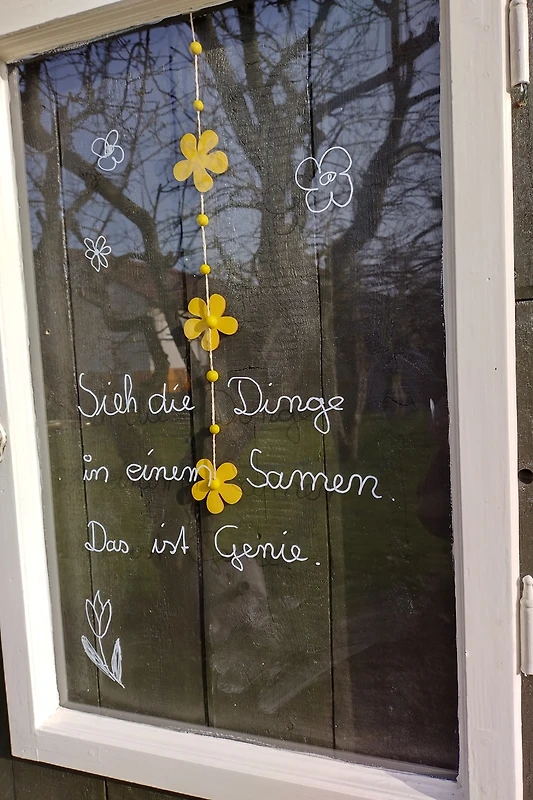 Sieh die Dinge
in einem Samen.
Das ist Genie.